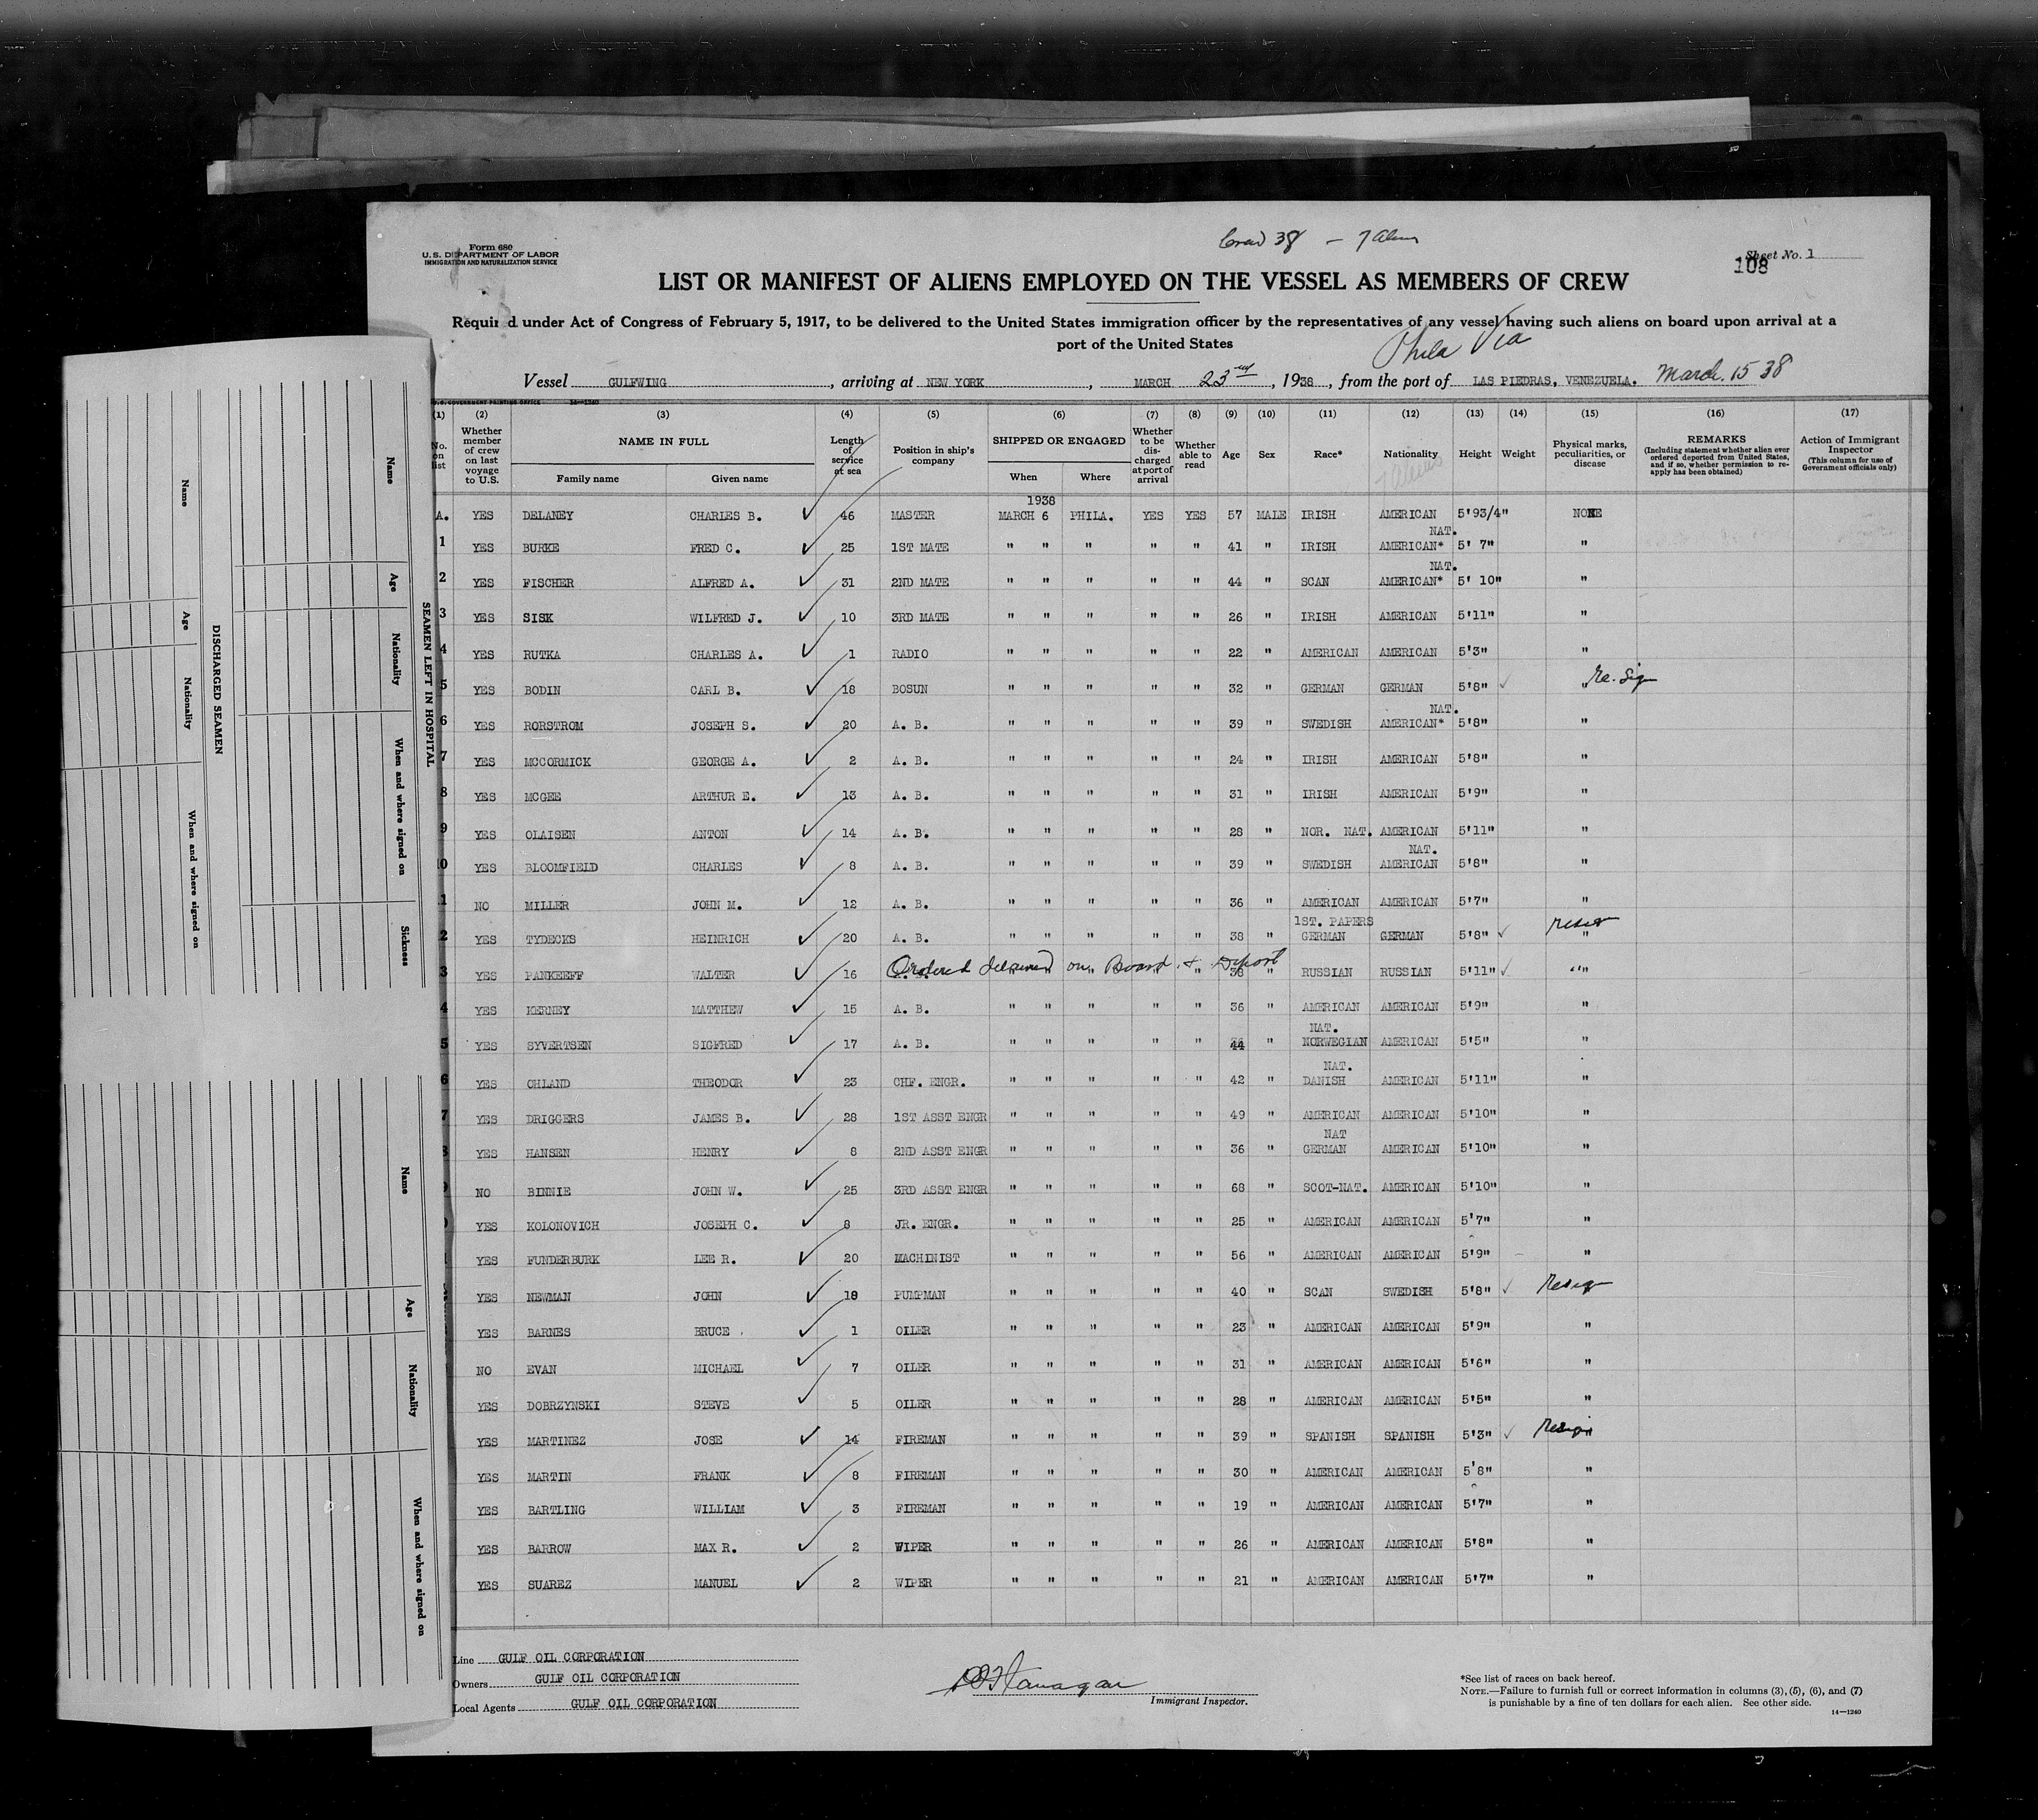 Form 680
U. S. DEPARTMENT OF LABOR
IMMIGRATION AND NATURALIZATION SERVICE
Crew 38 — 7 Aliens
Sheet No. 1
108
LIST OR MANIFEST OF ALIENS EMPLOYED ON THE VESSEL AS MEMBERS OF CREW
Required under Act of Congress of February 5, 1917, to be delivered to the United States immigration officer by the representatives of any vessel having such aliens on board upon arrival at a
port of the United States
Phila Via
Vessel GULFWING, arriving at NEW YORK, MARCH 23rd, 1938, from the port of LAS PIEDRAS, VENEZUELA. March 15 38
U.S. GOVERNMENT PRINTING OFFICE 14—1240
(1) (2) (3) (4) (5) (6) (7) (8) (9) (10) (11) (12) (13) (14) (15) (16) (17)
No. on list
Whether member of crew on last voyage to U.S.
NAME IN FULL
Family name
Given name
Length of service at sea
Position in ship's company
SHIPPED OR ENGAGED
When
Where
Whether to be discharged at port of arrival
Whether able to read
Age
Sex
Race*
Nationality
7 Aliens
Height
Weight
Physical marks, peculiarities, or disease
REMARKS
(Including statement whether alien ever ordered deported from United States, and if so, whether permission to reapply has been obtained)
Action of Immigrant Inspector
(This column for use of Government officials only)
1938
A. YES DELANEY CHARLES B. 46 MASTER MARCH 6 PHILA. YES YES 57 MALE IRISH AMERICAN 5'93/4" NONE
NAT.
1 YES BURKE FRED C. 25 1ST MATE " " " " " 41 " IRISH AMERICAN* 5' 7" "
NAT.
2 YES FISCHER ALFRED A. 31 2ND MATE " " " " " 44 " SCAN AMERICAN* 5' 10" "
3 YES SISK WILFRED J. 10 3RD MATE " " " " " 26 " IRISH AMERICAN 5'11" "
4 YES RUTKA CHARLES A. 1 RADIO " " " " " 22 " AMERICAN AMERICAN 5'3" "
5 YES BODIN CARL B. 18 BOSUN " " " " " 32 " GERMAN GERMAN 5'8" ✓ " Re. Sig
NAT.
6 YES RORSTROM JOSEPH S. 20 A. B. " " " " " 39 " SWEDISH AMERICAN* 5'8" "
7 YES MCCORMICK GEORGE A. 2 A. B. " " " " " 24 " IRISH AMERICAN 5'8" "
8 YES MCGEE ARTHUR E. 13 A. B. " " " " " 31 " IRISH AMERICAN 5'9" "
9 YES OLAISEN ANTON 14 A. B. " " " " " 28 " NOR. NAT. AMERICAN 5'11" "
NAT.
10 YES BLOOMFIELD CHARLES 8 A. B. " " " " " 39 " SWEDISH AMERICAN 5'8" "
1 NO MILLER JOHN M. 12 A. B. " " " " " 36 " AMERICAN AMERICAN 5'7" "
1ST. PAPERS
2 YES TYDECKS HEINRICH 20 A. B. " " " " " 38 " GERMAN GERMAN 5'8" ✓ Resig "
3 YES PANKEEFF WALTER 16 Ordered detained on Board & Deport 38 " RUSSIAN RUSSIAN 5'11" ✓ "
4 YES KERNEY MATTHEW 15 A. B. " " " " " 36 " AMERICAN AMERICAN 5'9" "
NAT.
5 YES SYVERTSEN SIGFRED 17 A. B. " " " " " 44 " NORWEGIAN AMERICAN 5'5" "
NAT.
6 YES OHLAND THEODOR 23 CHF. ENGR. " " " " " 42 " DANISH AMERICAN 5'11" "
7 YES DRIGGERS JAMES B. 28 1ST ASST ENGR " " " " " 49 " AMERICAN AMERICAN 5'10" "
NAT
8 YES HANSEN HENRY 8 2ND ASST ENGR " " " " " 36 " GERMAN AMERICAN 5'10" "
NO BINNIE JOHN W. 25 3RD ASST ENGR " " " " " 68 " SCOT-NAT. AMERICAN 5'10" "
YES KOLONOVICH JOSEPH C. 8 JR. ENGR. " " " " " 25 " AMERICAN AMERICAN 5'7" "
YES FUNDERBURK LEE R. 20 MACHINIST " " " " " 56 " AMERICAN AMERICAN 5'9" "
YES NEWMAN JOHN 18 PUMPMAN " " " " " 40 " SCAN SWEDISH 5'8" ✓ Resig
YES BARNES BRUCE 1 OILER " " " " " 23 " AMERICAN AMERICAN 5'9" "
NO EVAN MICHAEL 7 OILER " " " " " 31 " AMERICAN AMERICAN 5'6" "
YES DOBRZYNSKI STEVE 5 OILER " " " " " 28 " AMERICAN AMERICAN 5'5" "
YES MARTINEZ JOSE 14 FIREMAN " " " " " 39 " SPANISH SPANISH 5'3" ✓ Resign
YES MARTIN FRANK 8 FIREMAN " " " " " 30 " AMERICAN AMERICAN 5'8" "
YES BARTLING WILLIAM 3 FIREMAN " " " " " 19 " AMERICAN AMERICAN 5'7" "
YES BARROW MAX R. 2 WIPER " " " " " 26 " AMERICAN AMERICAN 5'8" "
YES SUAREZ MANUEL 2 WIPER " " " " " 21 " AMERICAN AMERICAN 5'7" "
Line GULF OIL CORPORATION
Owners GULF OIL CORPORATION
Local Agents GULF OIL CORPORATION
Flanagan
Immigrant Inspector.
*See list of races on back hereof.
NOTE.—Failure to furnish full or correct information in columns (3), (5), (6), and (7)
is punishable by a fine of ten dollars for each alien. See other side.
14—1240
SEAMEN LEFT IN HOSPITAL
Name Age Nationality When and where signed on Sickness
DISCHARGED SEAMEN
Name Age Nationality When and where signed on
Name Age Nationality When and where signed on